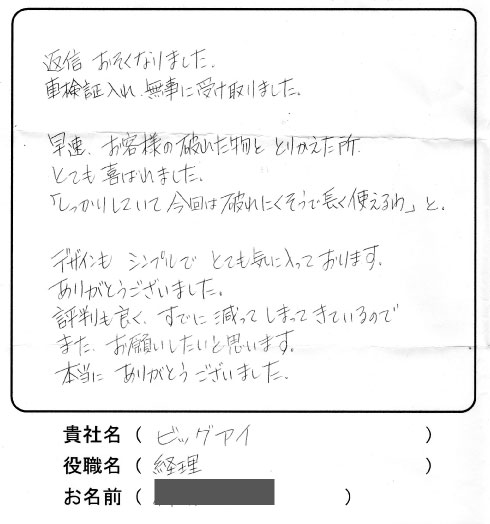 返信 おそくなりました.
車検証入れ、無事に受け取りました。
早速、お客様の破れた物と とりかえた所
とても 喜ばれました。
「しっかりしていて 今回は破れにくそうで長く使えるわ」と、
デザインも シンプルで とても気に入って おります.
ありがとうございました。
評判も良く、すでに 減って しまって きているので
また、お願いしたいと思います。
本当に ありがとうございました。
貴社名（ ビッグアイ ）
役職名（ 経理 ）
お名前（ ）